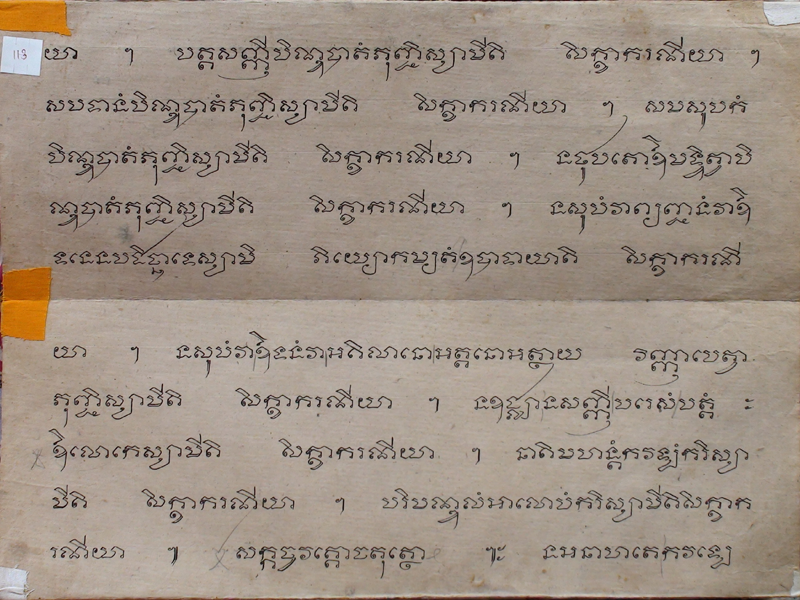 113
យា ។ បត្តសញ្ញីបិណ្ឌបាតំភុញ្ជិស្សាមីតិ សិក្ខាករណីយា ។
សបទានំបិណ្ឌបាតំភុញ្ជិស្សាមីតិ សិក្ខាករណីយា ។ សមសូបកំ
បិណ្ឌបាតំភុញ្ជិស្សាមីតិ សិក្ខាករណីយា ។ នថុបតោឱមទ្ទិត្វាបិ
ណ្ឌបាតំភុញ្ជិស្សាមីតិ សិក្ខាករណីយា ។ នសុបំវាព្យញ្ជានំវាឱ
ទនេនបដិច្ឆាទេស្សាមិ ភិយ្យោកម្យតំឧបាទាយាតិ សិក្ខាករណី
យា ។ នសុបំវាឱទនំវាអគិលានោអត្តនោអត្ថាយ វិញ្ញាបេត្វា
ភុញ្ជិស្សាមីតិ សិក្ខាករណីយា ។ នឧជ្ឈានសញ្ញីបរេសំបត្តំ ៈ
ឱលោកេស្សាមីតិ សិក្ខាករណីយា ។ នាតិមហន្តំកវឡំករិស្សា
មីតិ សិក្ខាករណីយា ។ បរិមណ្ឌលំអាលោបំករិស្សាមីតិសិក្ខាក
រណីយា ៕ សក្កច្ចវគ្គោចតុត្ថោ ៕ៈ នអនាហតេកវឡេ